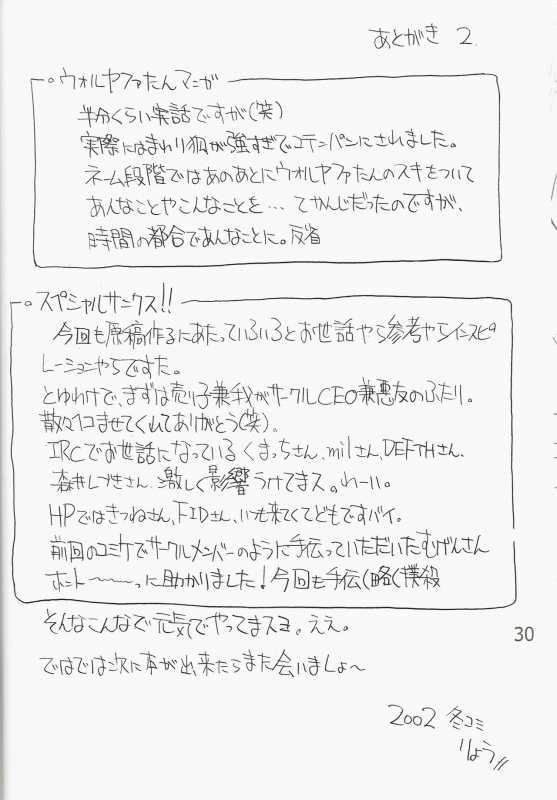 あとがき 2.
ウォルヤファたんマンガ
半分くらい実話ですが(笑)
実際にはまわり狐が強すぎでコテンパンにされました。
ネーム段階ではあのあとにウォルヤファたんのスキをついて
あんなことやこんなことを…てかんじだったのですが、
時間の都合であんなことに。反省
スペシャルサンクス!!
今回も原稿作るにあたっていろいろとお世話やら参考やらインスピ
レーションやらですた。
とゆわけで、まずは売り子兼我がサークルCEO兼悪友のふたり。
散々イコませてくれてありがとう(笑)。
IRCでお世話になっているくまっちさん、milさん、DEFTHさん、
森井しづきさん 激しく影響うけてまス。わーい。
HPではきつねさん、FIDさん、いつも来てくてどもですバイ。
前回のコミケでサークルメンバーのように手伝っていただいたむげんさん
ホント〜〜〜っに助かりました!今回も手伝(略(撲殺
そんなこんなで元気でやってまスヨ。ええ。
ではでは次に本が出来たらまた会いましょ〜
30
2002 冬コミ
りょう